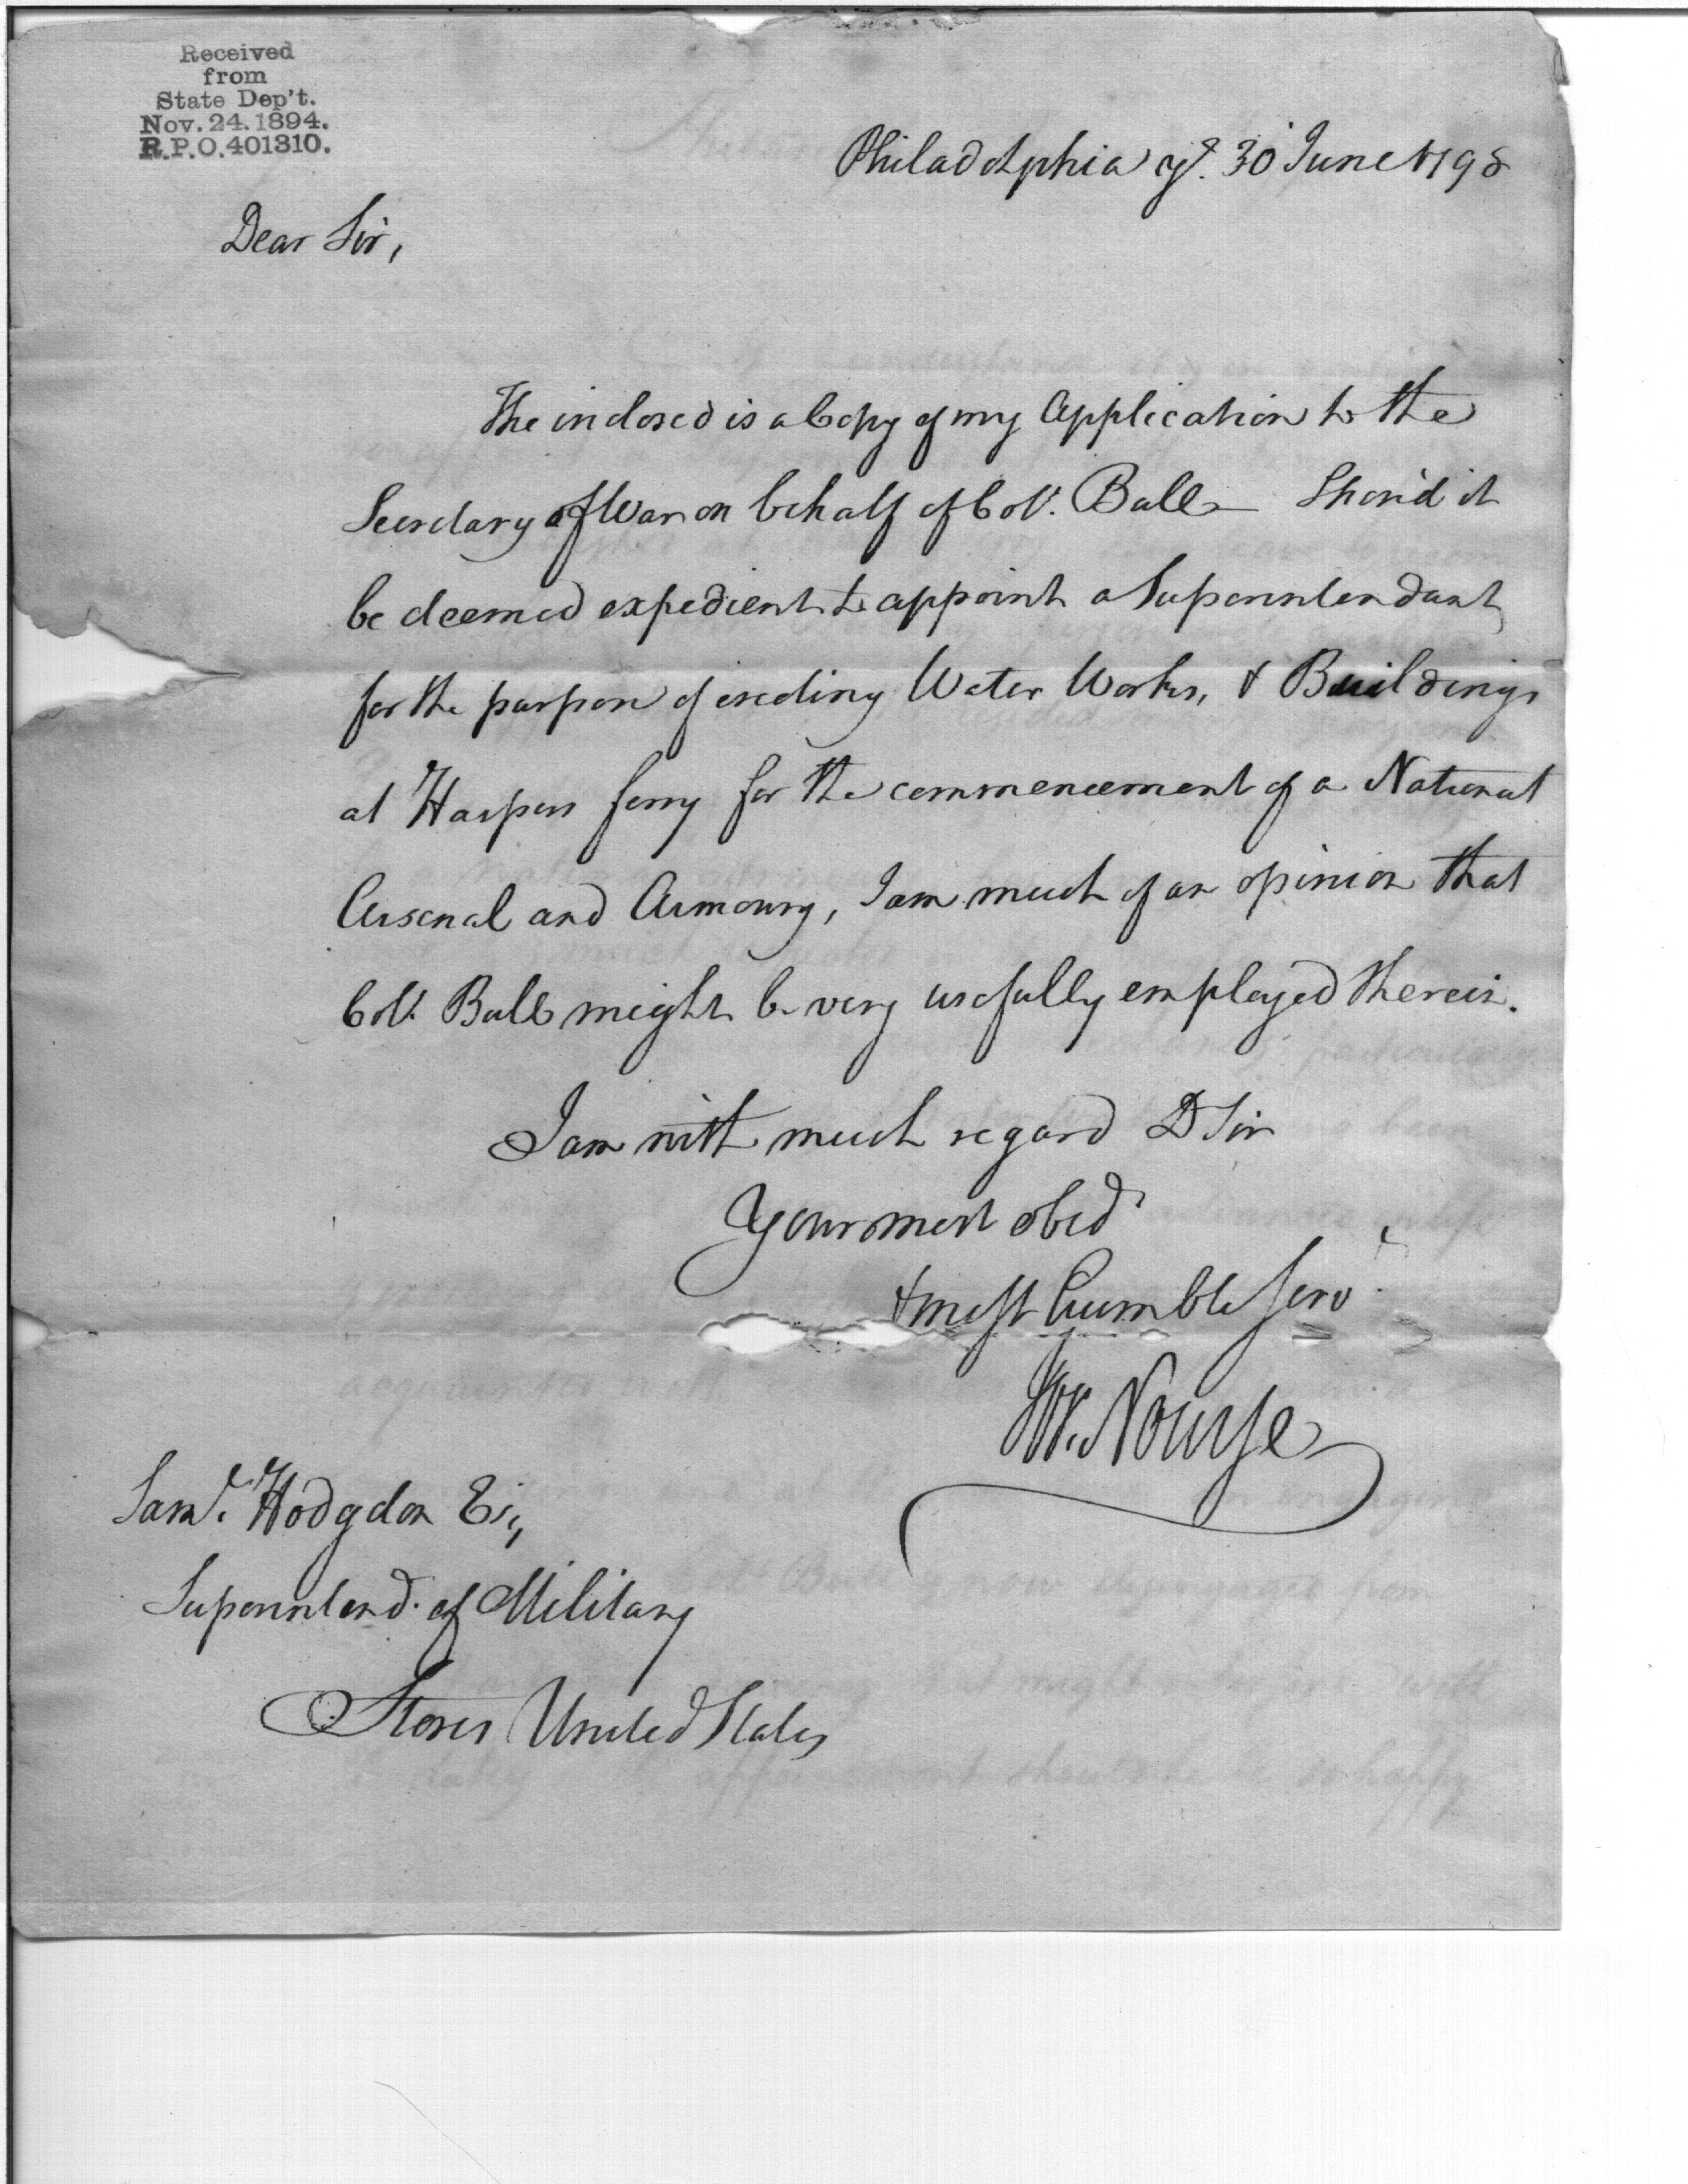 Received
from
State Dep't.
Nov. 24. 1894.
R.P.O. 401310.
Philadelphia ye. 30 June 1798
Dear Sir,
The inclosed is a Copy of my Application to the
Secretary of War on behalf of Coll. Ball— Shou'd it
be deemed expedient to appoint a Superintendant
for the purpose of erecting Water Works, & Buildings
at Harpers ferry for the commencement of a National
Arsenal and Armoury, I am much of an opinion that
Coll. Ball might be very usefully employed therein.
I am with much regard D Sir
Your most obedt
& most humble Servt.
W. Nourse
Saml. Hodgdon Esq,
Superintend. of Military
Stores United States